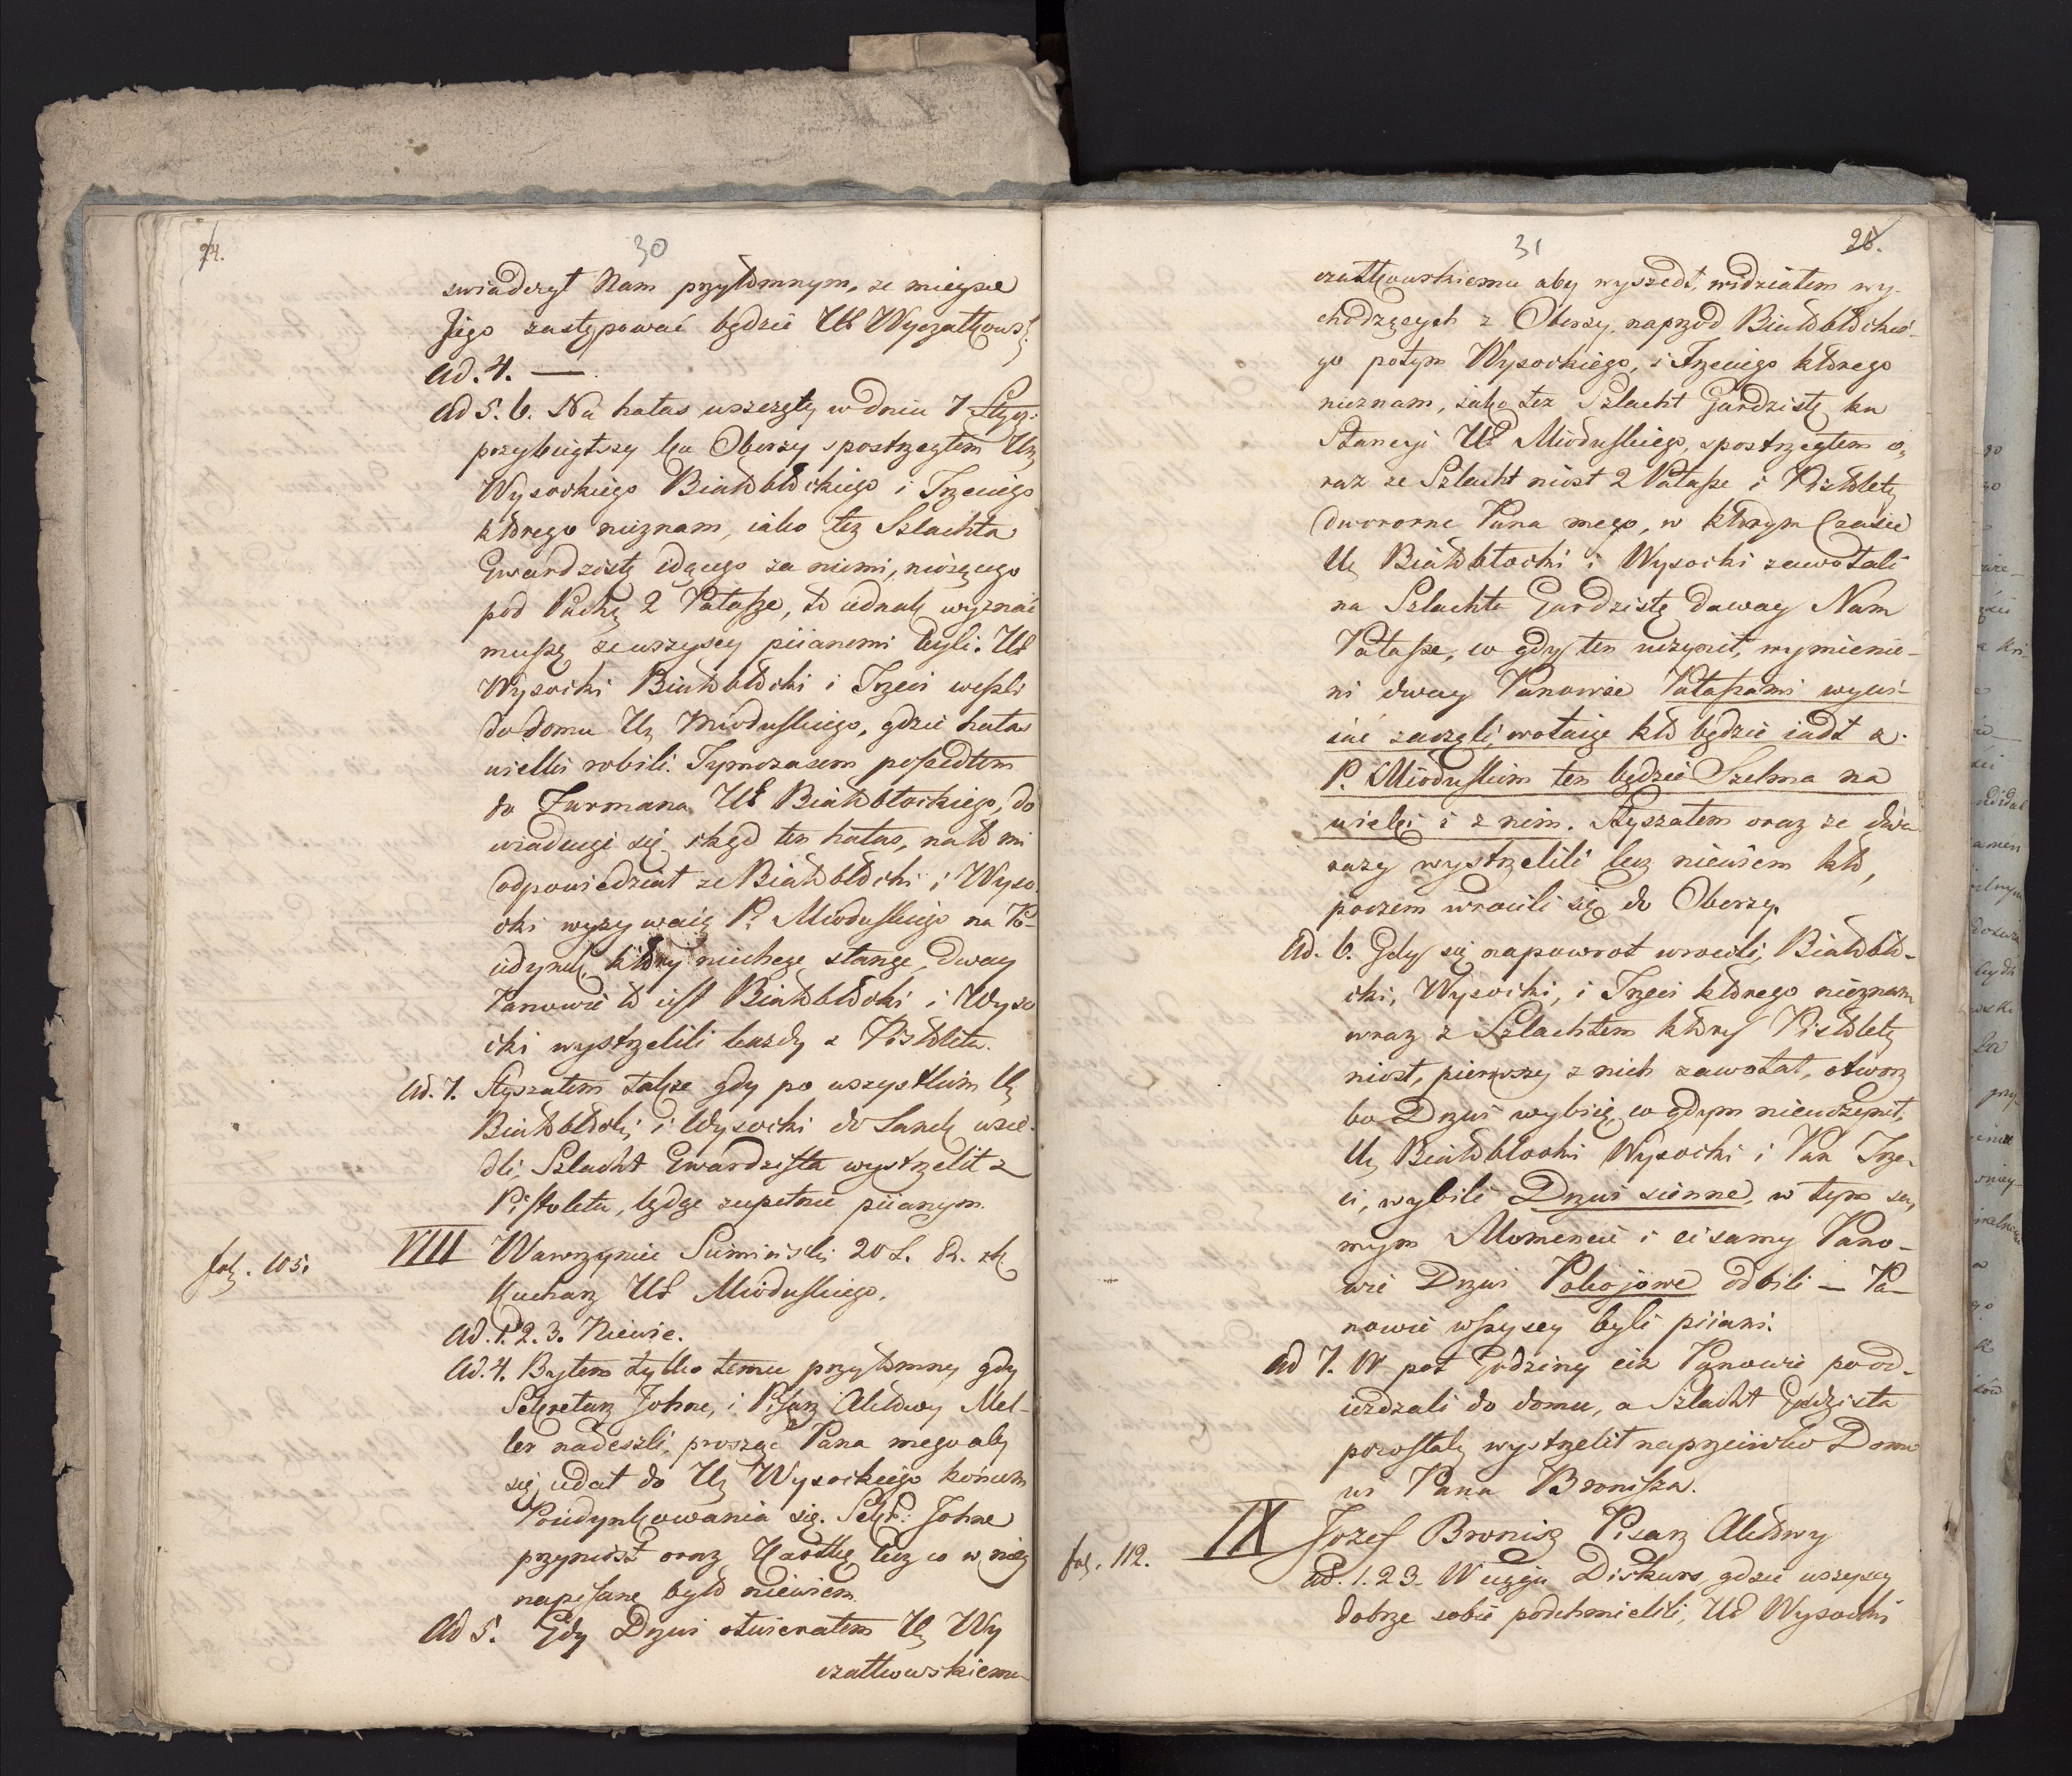 24.
30
swiadczył Nam przytomnym, że mieysce
Jego zastępować będzie Ur Wyczałkowsk:
Ad. 4. —
Ad 5. 6. Na hałas wszczęty w dniu 7 Stycz:
przybiegłszy ku Oberzy spostrzegłem Ur
Wysockiego Białobłockiego i Trzeciego
którego nieznam, iako też Szlachta
Gwardzistę idącego za niemi, niosącego
pod Pachą 2 Pałasze, to iednak wyznać
muszę że wszyscy piianemi byli. Ur
Wysocki Białobłocki i Trzeci weszli
do domu Ur Mioduskiego, gdzie hałas
wielki robili. Tymczasem poszedłem
do Furmana Ur Białobłockiego, do
wiaduię się skąd ten hałas, na to mi
odpowiedział że Białobłocki i Wyso
cki wyzywaią P. Mioduskiego na Po-
iedynek, który niechcę stanąć, dway
Panowie to iest Białobłocki i Wyso
cki wystrzelili każdy z Pistoleta.
Ad. 7. Słyszałem także gdy po wszystkim Ur
Białobłocki i Wysocki do Sanek wsie-
dli, Szlacht Gwardzista wystrzelił z
Pistoleta, będąc zupełnie piianym.
fol. 105. VIII Wawrzyniec Sumiński 20 L.
Kucharz Ur Mioduskiego.
Ad. 1. 2. 3. Niewie.
Ad. 4. Byłem tylko temu przytomny gdy
Sekretarz Johne, i Pisarz Aktowy Mel-
ler nadeszli, prosząc Pana mego aby
się udał do Ur Wysockiego końcem
Poiedynkowania się. Sekr: Johne
przyniósł oraz Kartkę lecz co w niey
napisane było niewiem.
Ad 5. Gdy Drzwi otwierałem Ur Wy
czałkowskiemu
31
25.
czałkowskiemu aby wyszedł, widziałem wy-
chodzących z Oberzy, naprzód Białobłockie-
go potym Wysockiego, i Trzeciego którego
nieznam, iako też Szlacht Gardzistę ku
Stancyi Ur Mioduskiego, spostrzegłem o-
raz że Szlacht niósł 2 Pałasze i Pistolety
Dwororne Pana mego, w którym Czasie
Ur Białobłocki i Wysocki zawołali
na Szlachta Gardzistę daway Nam
Pałasze, co gdy ten uczynił, wymienie-
ni dway Panowie Pałaszami wywi-
iać zaczęli, wołaiąc kto będzie iadł z
P. Mioduskim ten będzie Szelma na
wieki i z nim. Słyszałem oraz że dwa
razy wystrzelili lecz niewiem kto,
poczem wrócili się do Oberzy.
Ad. 6. Gdy się napowrot wrócili, Białobło-
cki, Wysocki, i Trzeci którego nieznam
wraz z Szlachtem który Pistolety
niósł, pierwszy z nich zawołał, otworz
bo Drzwi wybiię, co gdym nieuczynił,
Ur Białobłocki Wysocki i Pan Trze-
ci, wybili Drzwi sienne, w tym sa-
mym Momencie i ci samy Pano-
wie Drzwi Pokojowe odbili — Pa-
nowie wszyscy byli piiani.
Ad 7. W poł Godziny ciż Panowie pood-
ieżdzali do domu, a Szlacht Gardzista
pozostały wystrzelił naprzeciwko Domo
wi Pana Bronisza.
fol. 112. IX Jozef Bronisz Pisarz Aktowy
Ad. 1. 2 3. W ciągu Diskurs, gdzie wszyscy
dobrze sobie podchmielili, Ur Wysocki